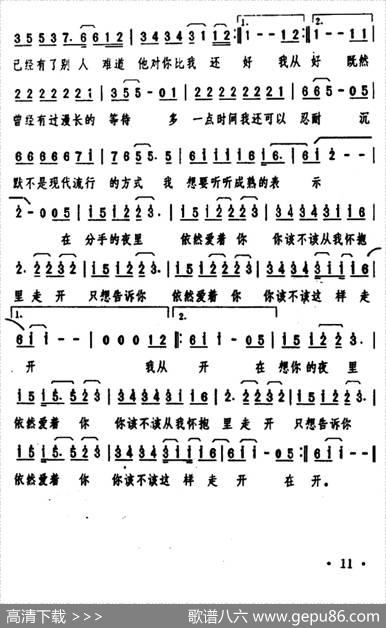 1. 2.
35537.6612|343431 12:|1--12:|1--11|
已经有了别人 难道 他对你比我 还 好 我从 好 既然
2222221|355-01|22222221|665-05|
曾经有过漫长的 等待 多 一点时间我还可以 忍耐 沉
66666671|7655.5|61111616.|612--|
默不是现代流行 的方式 我 想要听听成熟的 表 示
2-005|151223.|151223.|343434316|
在 分手的夜里 依然爱着 你 你该不该从我怀抱
2.2232|151223.|151223.|343431116|
里 走 开 只想告诉你 依然爱着 你 你该不该这 样 走
1. 2.
611--|00012:|611-05|151223.|
开 我从 开 在 想你的夜 里
1515.523|343434316|2.22232|151223.|
依然爱着 你 你该不该从我怀抱 里 走 开 只想告诉你
1515.523|343431116|611-05:|611--|
依然爱着 你 你该不该这 样 走 开 在 开。
· 11 ·
高清下载 >>>
歌谱八六 www.gepu86.com